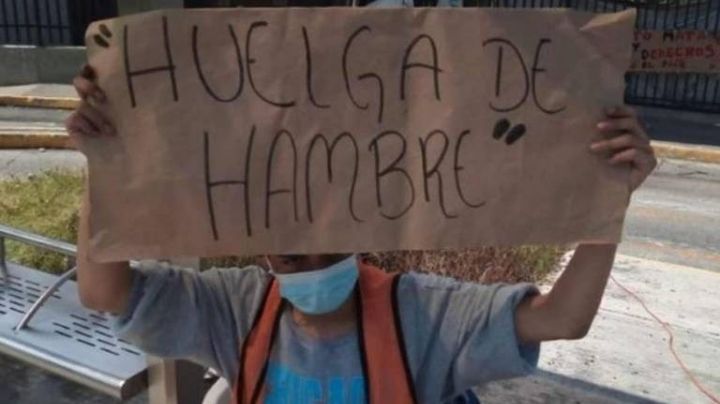 "HUELGA DE
HAMBRE"
MATAR
Y
DERECHOS